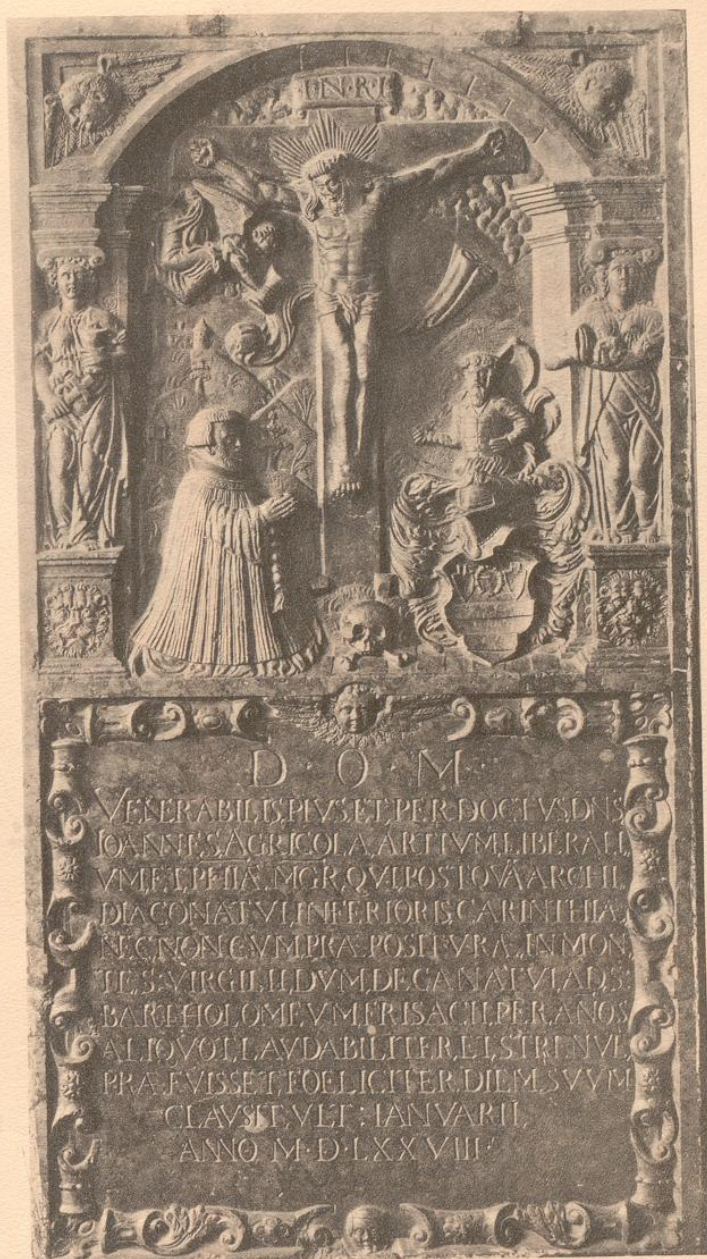 I·N·R·I
D · O · M ·
VENERABILIS, PIVS, ET, PER, DOCTVS, DNS
IOANNES, AGRICOLA, ARTIVM, LIBERALI,
VM, ET, PHIIÆ, MGR, QVI, POSTQVĀ, ARCHI,
DIACONATVI, INFERIORIS, CARINTHIA,
NEC, NON, CVM, PRÆPOSITVRÆ, IN, MON,
TE, S: VIRGILII, DVM, DECANATVI, AD, S:
BARTHOLOMEVM, FRISACII, PER, ANOS
ALIQVOT, LAVDABILITER, ET, STRENVE,
PRÆFVISSET, FOELICITER, DIEM, SVVM
CLAVSIT, VLT: IANVARII,
ANNO M·D·LXXVIII·